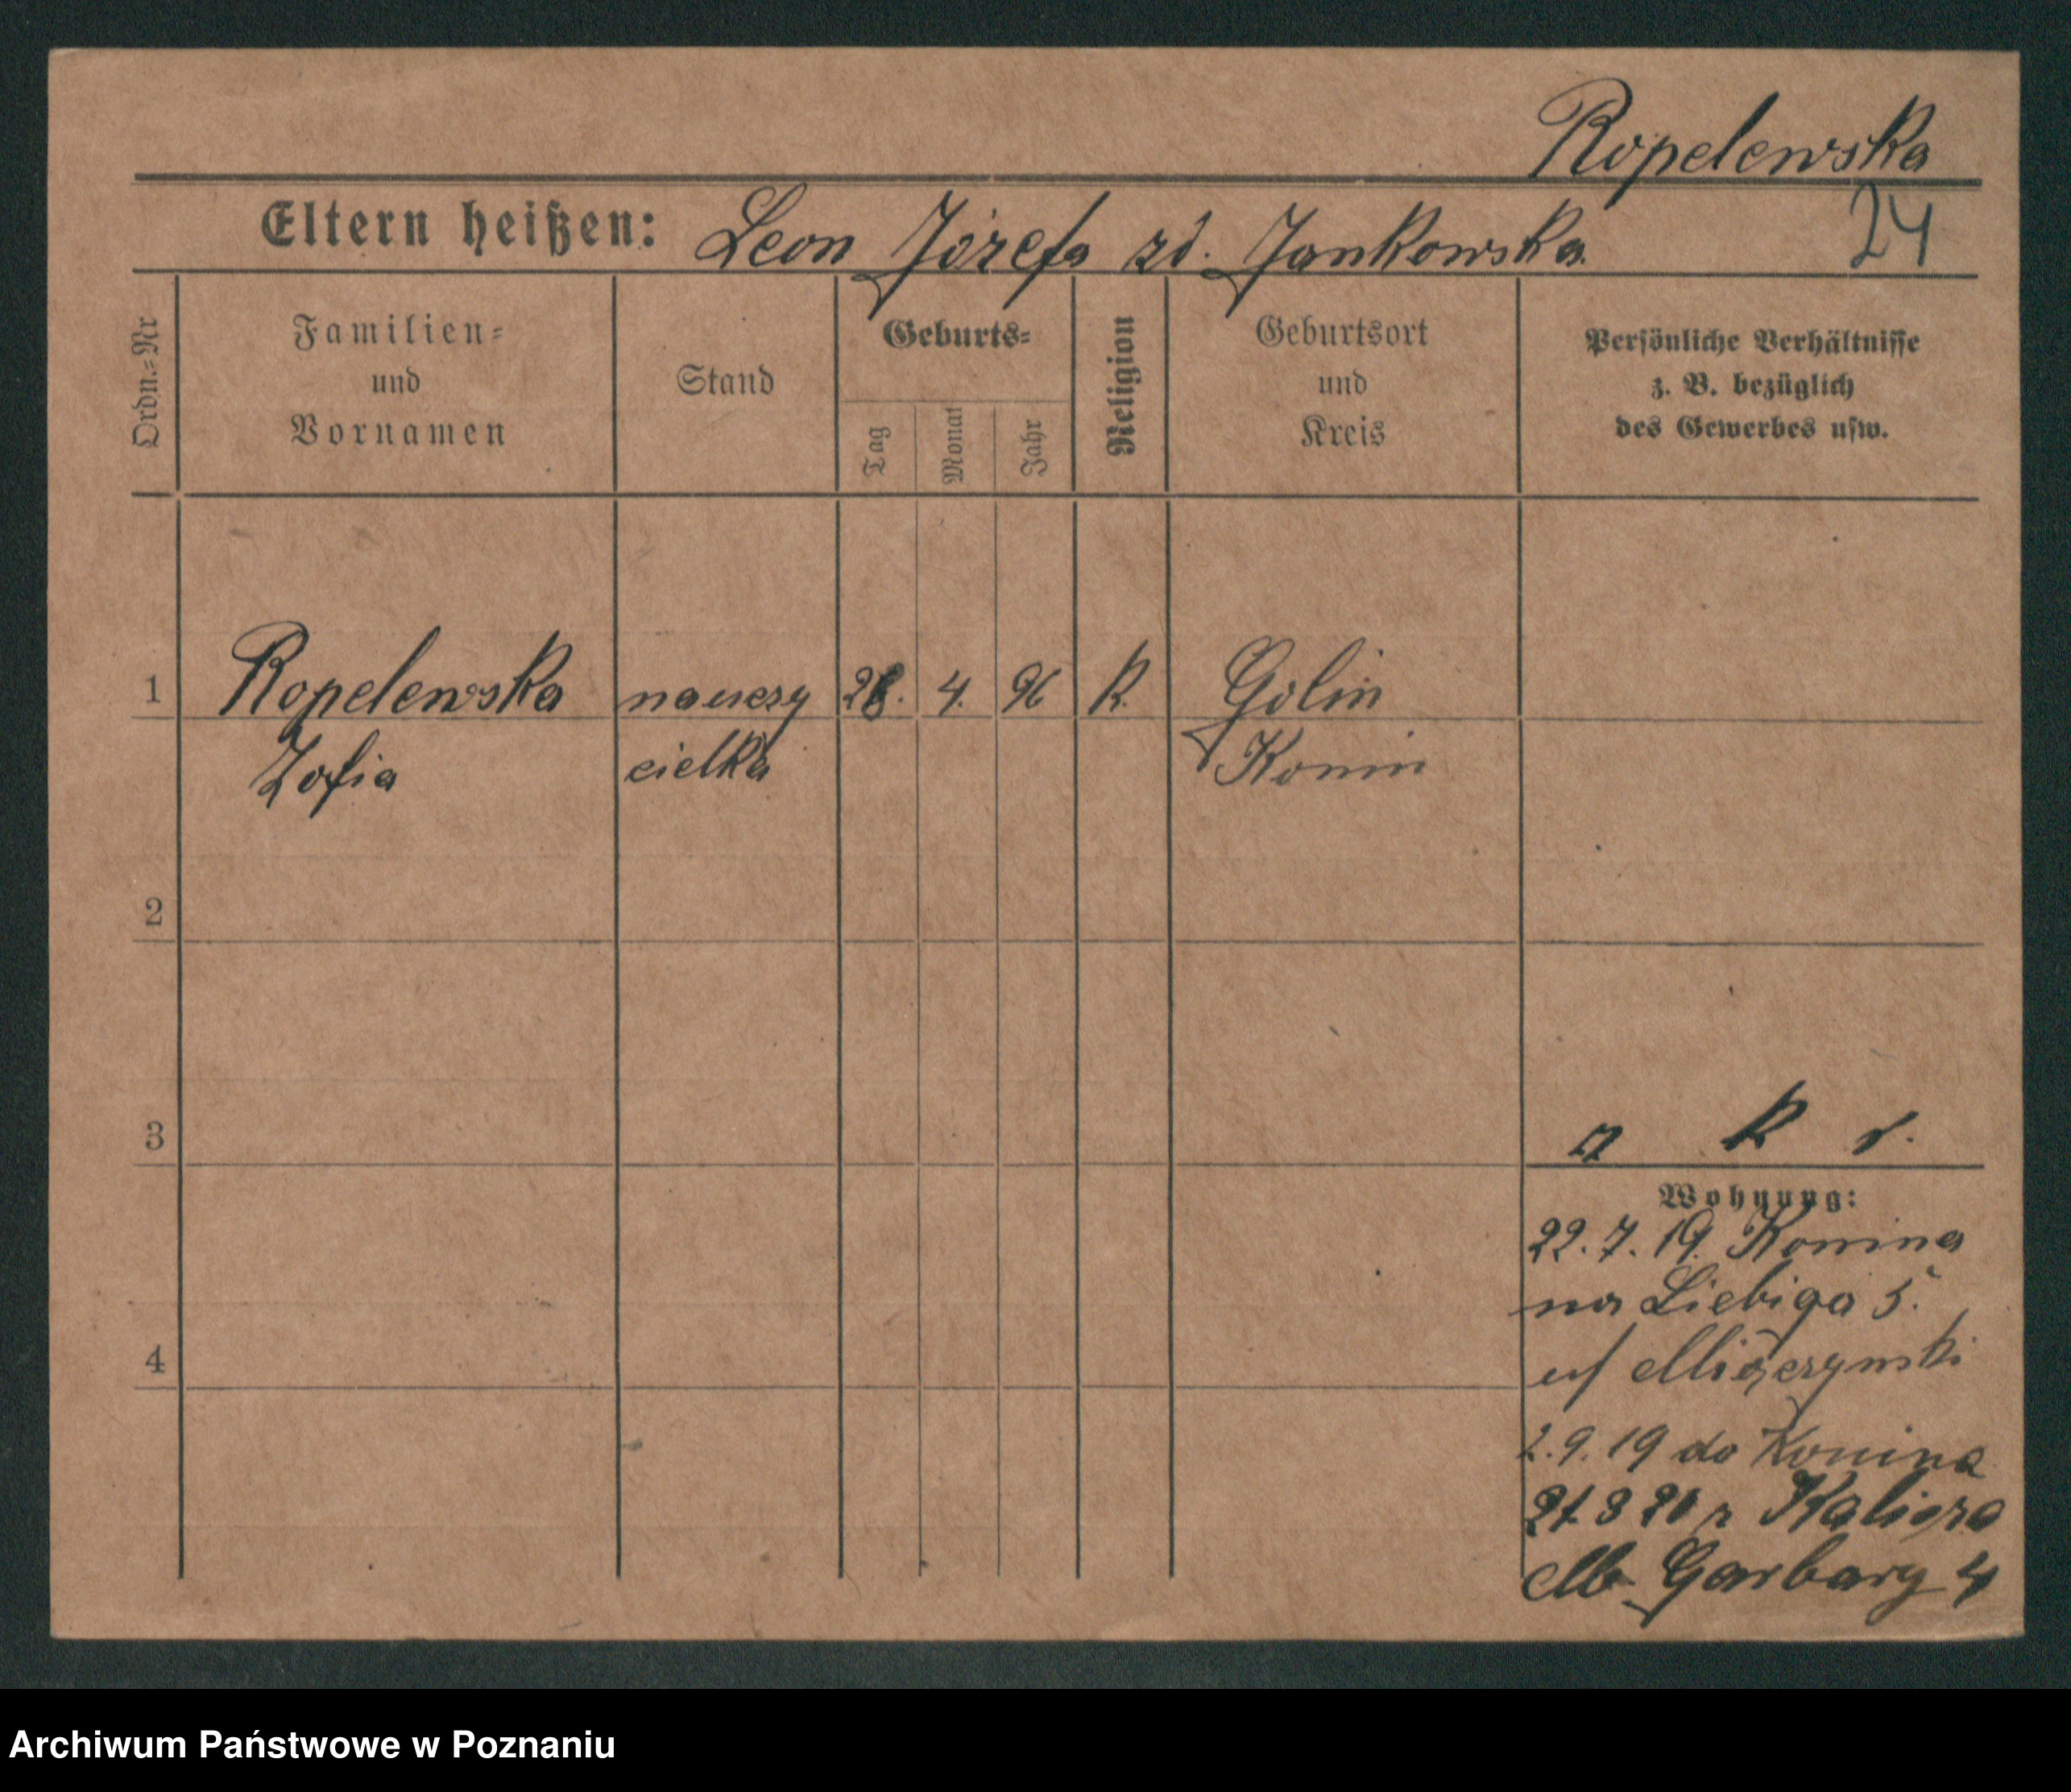 Ropelewska
Eltern heißen: Leon Józefa zd. Jankowska
24
Ordn.=Nr
Familien=
und
Vornamen
Stand
Geburts=
Tag
Monat
Jahr
Religion
Geburtsort
und
Kreis
Persönliche Verhältnisse
z. B. bezüglich
des Gewerbes usw.
1 Ropelewska nauczy 28. 4. 96 K. Golin
Zofia cielka Konin
2
3
Wohnung:
22. 7. 19. Konina
na Liebiga 5.
4
2. 9. 19 do Konina
20 z Kalisza
Garbary 4
Archiwum Państwowe w Poznaniu